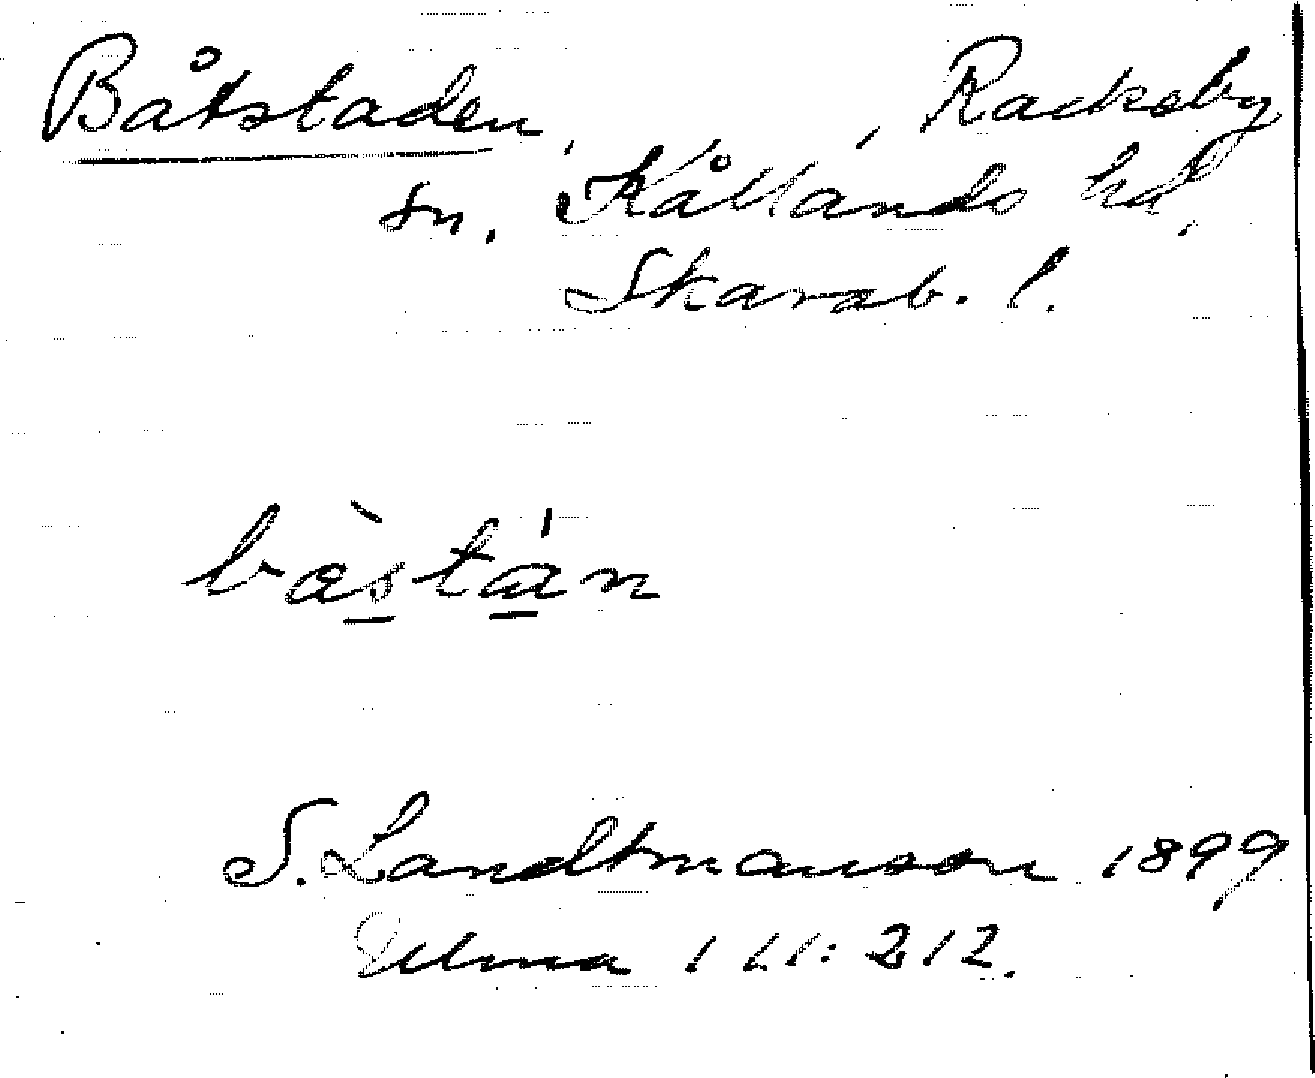 Båtstaden, Rackeby
sn, Kållands hd,
Skarab. l.
bàstán
S. Landtmanson 1899
Ulma 111:212.